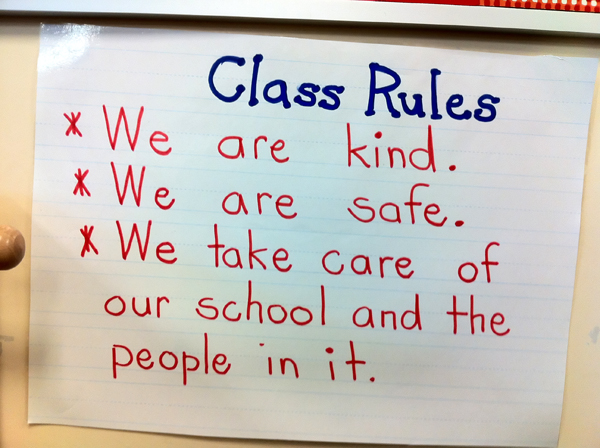 Class Rules
* We are kind.
* We are safe.
* We take care of
our school and the
people in it.